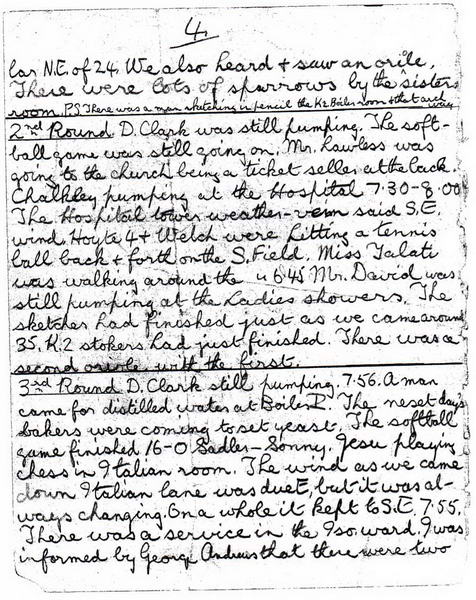 4.
lar N.E. of 24. We also heard + saw an oriole.
There were lots of sparrows by the sisters
room. P.S There was a man sketching in pencil the K2 Boiler-room + that area
way
2nd Round D. Clark was still pumping. The soft-
ball game was still going on. Mr. Lawless was
going to the church being a ticket seller at the back.
Chalkley pumping at the Hospital 7.30-8.00
The Hospital tower weather-vein said S.E.
wind. Hoyte 4 + Welch were hitting a tennis
ball back + forth on the S. Field. Miss Talati
was walking around the " 6.45 Mr. David was
still pumping at the Ladies showers. The
sketcher had finished just as we came around
35. K.2 stokers had just finished. There was a
second oriole with the first.
3rd Round D. Clark still pumping. 7.56. A man
came for distilled water at Boiler I. The next day's
bakers were coming to set yeast. The softball
game finished 16-0 Sadler-Sonny. Jesu playing
chess in Italian room. The wind as we came
down Italian lane was due E, but it was al-
ways changing. On a whole it kept to S.E. 7.55.
There was a service in the Iso. ward. I was
informed by George Andrews that there were two